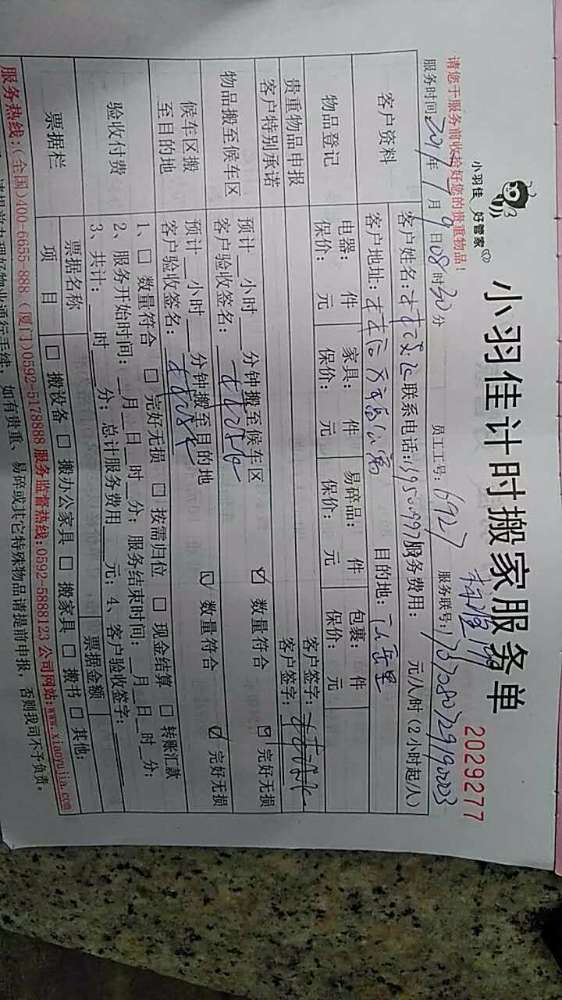 请您于服务前收拾好您的贵重物品!
小羽佳 好管家
小羽佳计时搬家服务单
2029277
服务时间: 2017年 月9日08时30分 员工工号: 6927 服务联号:
客户资料 客户姓名: 联系电话: 服务费用: 元/人/时(2小时起/人)
客户地址: 目的地:
物品登记 电器: 件 家具: 件 易碎品: 件 包裹: 件
保价: 元 保价: 元 保价: 元 保价: 元
贵重物品申报 客户签字:
客户特别承诺 客户签字:
物品搬至候车区 预计 小时 分钟搬至候车区 ☑ 数量符合 ☑ 完好无损
客户验收签名:
候车区搬至目的地 预计 小时 分钟搬至目的地 ☑ 数量符合 ☑ 完好无损
客户验收签名:
验收付费 1、□ 数量符合 □ 完好无损 □ 按需归位 □ 现金结算 □ 转账汇款
2、服务开始时间: 月 日 时 分; 服务结束时间: 月 日 时 分;
3、共计: 时 分; 总计服务费用 元; 4、客户验收签字:
票据栏 票据名称 票据金额
项目 □ 搬设备 □ 搬办公家具 □ 搬家具 □ 搬书 □ 其他:
服务热线:(全国)400-6655-888 (厦门)0592-5178888 服务监督热线:0592-5888123 公司网站:www.xiaoyujia.com
提前办理好物业通行手续, 如有贵重、易碎或其它特殊物品请提前申报, 否则我司不予负责。